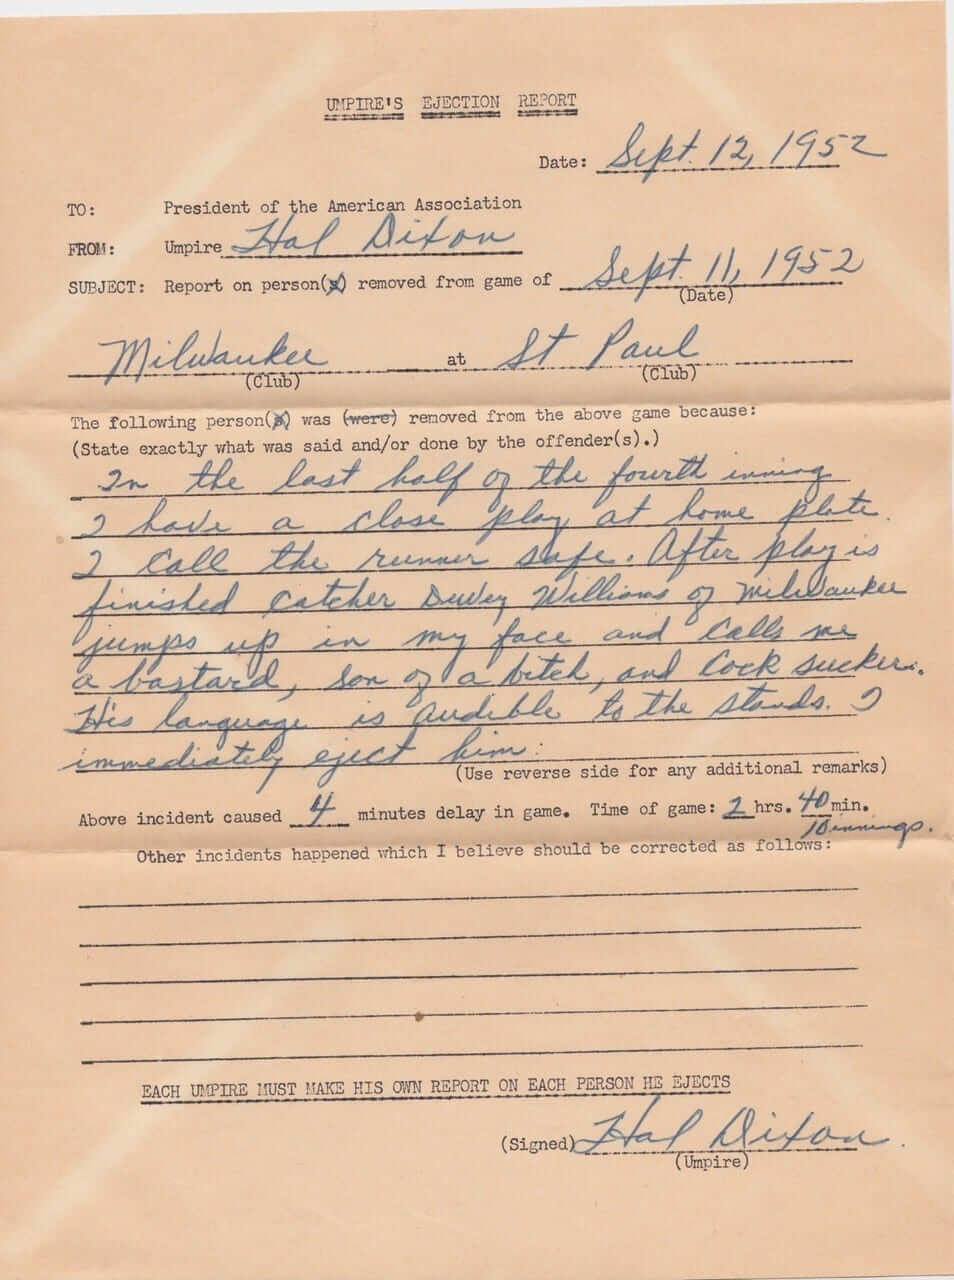 UMPIRE'S EJECTION REPORT
Date: Sept. 12, 1952
TO: President of the American Association
FROM: Umpire Hal Dixon
SUBJECT: Report on person(s) removed from game of Sept. 11, 1952
(Date)
Milwaukee at St Paul
(Club) (Club)
The following person(s) was (were) removed from the above game because:
(State exactly what was said and/or done by the offender(s).)
In the last half of the fourth inning
I have a close play at home plate.
I call the runner safe. After play is
finished catcher Dewey Williams of Milwaukee
jumps up in my face and calls me
a bastard, son of a bitch, and cock sucker.
His language is audible to the stands. I
immediately eject him.
(Use reverse side for any additional remarks)
Above incident caused 4 minutes delay in game. Time of game: 2 hrs. 40 min.
10 innings.
Other incidents happened which I believe should be corrected as follows:
EACH UMPIRE MUST MAKE HIS OWN REPORT ON EACH PERSON HE EJECTS
(Signed) Hal Dixon.
(Umpire)